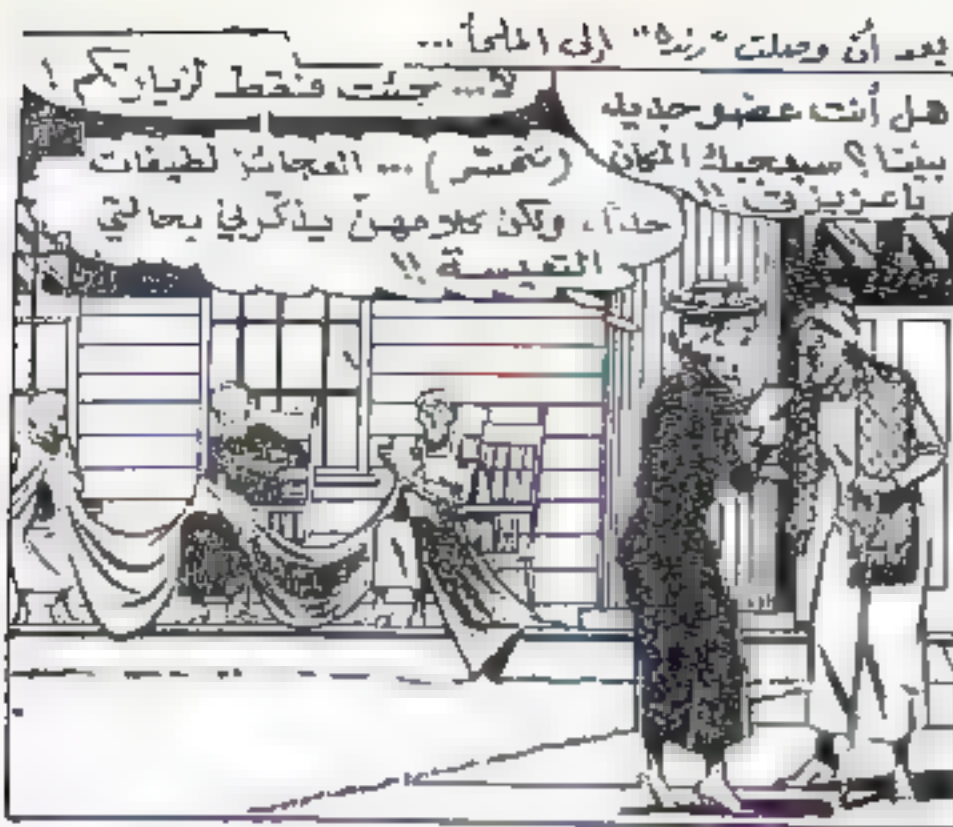 بعد أن وصلت "رندة" الى الملجأ ...
هل أنت عضو جديد
بيننا؟ سيعجبك المكان
يا عزيزتي !!
لا... جئت فقط لزيارتكم !
... العجائز لطيفات
جدا، ولكن كلامهن يذكرني بحالتي
التعيسة !!